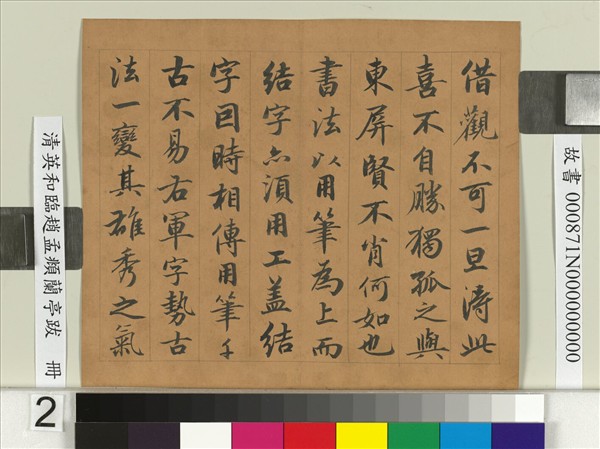 借觀不可一旦得此
喜不自勝獨孤之與
東屏賢不肖何如也
書法以用筆為上而
結字亦須用工蓋結
字因時相傳用筆千
古不易右軍字勢古
法一變其雄秀之氣
故書 000871N000000000
清英和臨趙孟頫蘭亭跋 冊
2